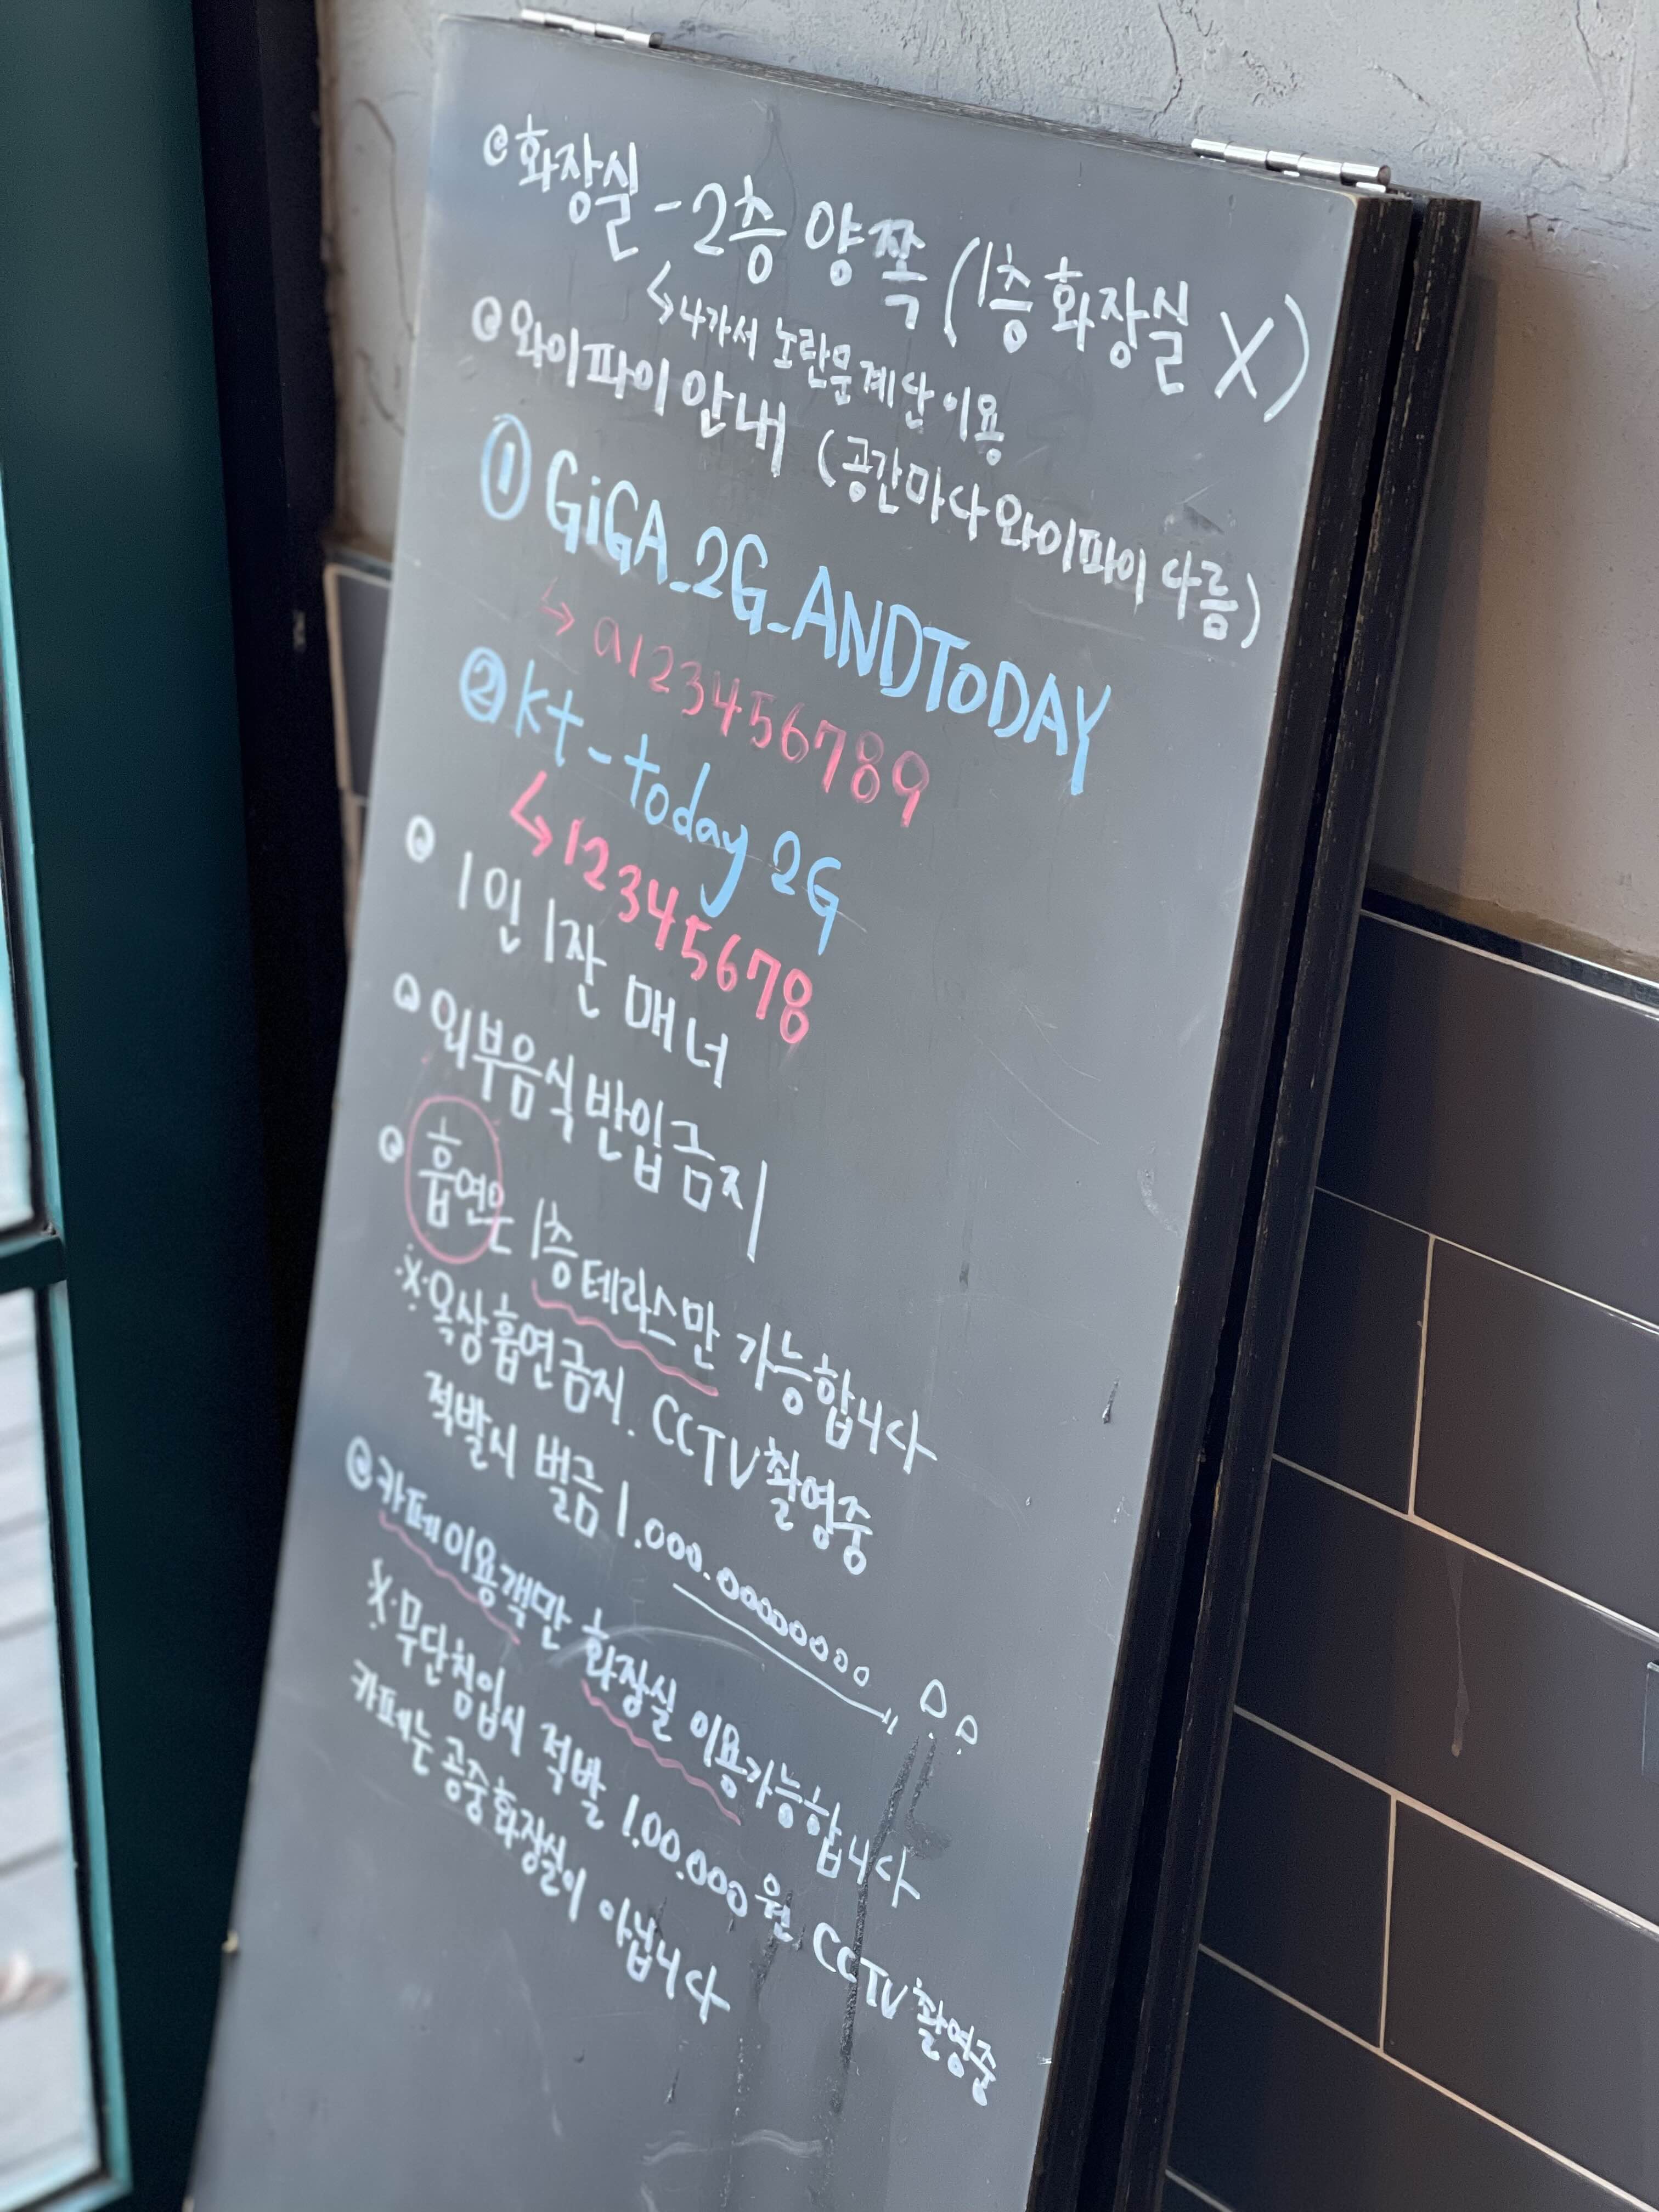 화장실 - 2층 양쪽 (1층 화장실 X)
↳ 나가서 노란문 계단 이용
와이파이 안내 (공간마다 와이파이 다름)
① GiGA_2G_ANDToDAY
↳ a123456789
② kt - today 2G
↳ 12345678
1인 1잔 매너
외부음식 반입금지
흡연은 1층 테라스만 가능합니다
※ 옥상 흡연금지. CCTV 촬영중
적발시 벌금 1.000.00000000
카페이용객만 화장실 이용가능합니다
※ 무단침입시 적발 1.00.000원. CCTV 촬영중
카페는 공중화장실이 아닙니다